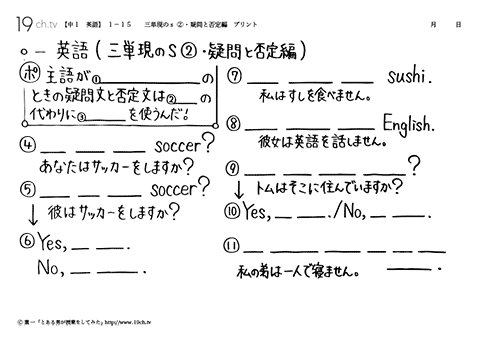 19ch.tv 【中1 英語】 1-15 三単現のs②・疑問と否定編 プリント 月 日
○- 英語(三単現のS②・疑問と否定編)
ポ 主語が①__________の
ときの疑問文と否定文は②____の
代わりに③______を使うんだ!
④ ___ ___ ___ soccer?
あなたはサッカーをしますか?
⑤ ___ ___ ___ soccer?
↓ 彼はサッカーをしますか?
⑥ Yes, ___ ___.
No, ___ ___.
⑦ ___ ___ ___ sushi.
私はすしを食べません。
⑧ ___ ___ ___ English.
彼女は英語を話しません。
⑨ ___ ___ ___ ___?
↓ トムはそこに住んでいますか?
⑩ Yes, ___ ___./No, ___ ___.
⑪ ___ ___ ___ ___ ___ ___.
私の弟は一人で寝ません。
© 葉一「とある男が授業をしてみた」http://www.19ch.tv